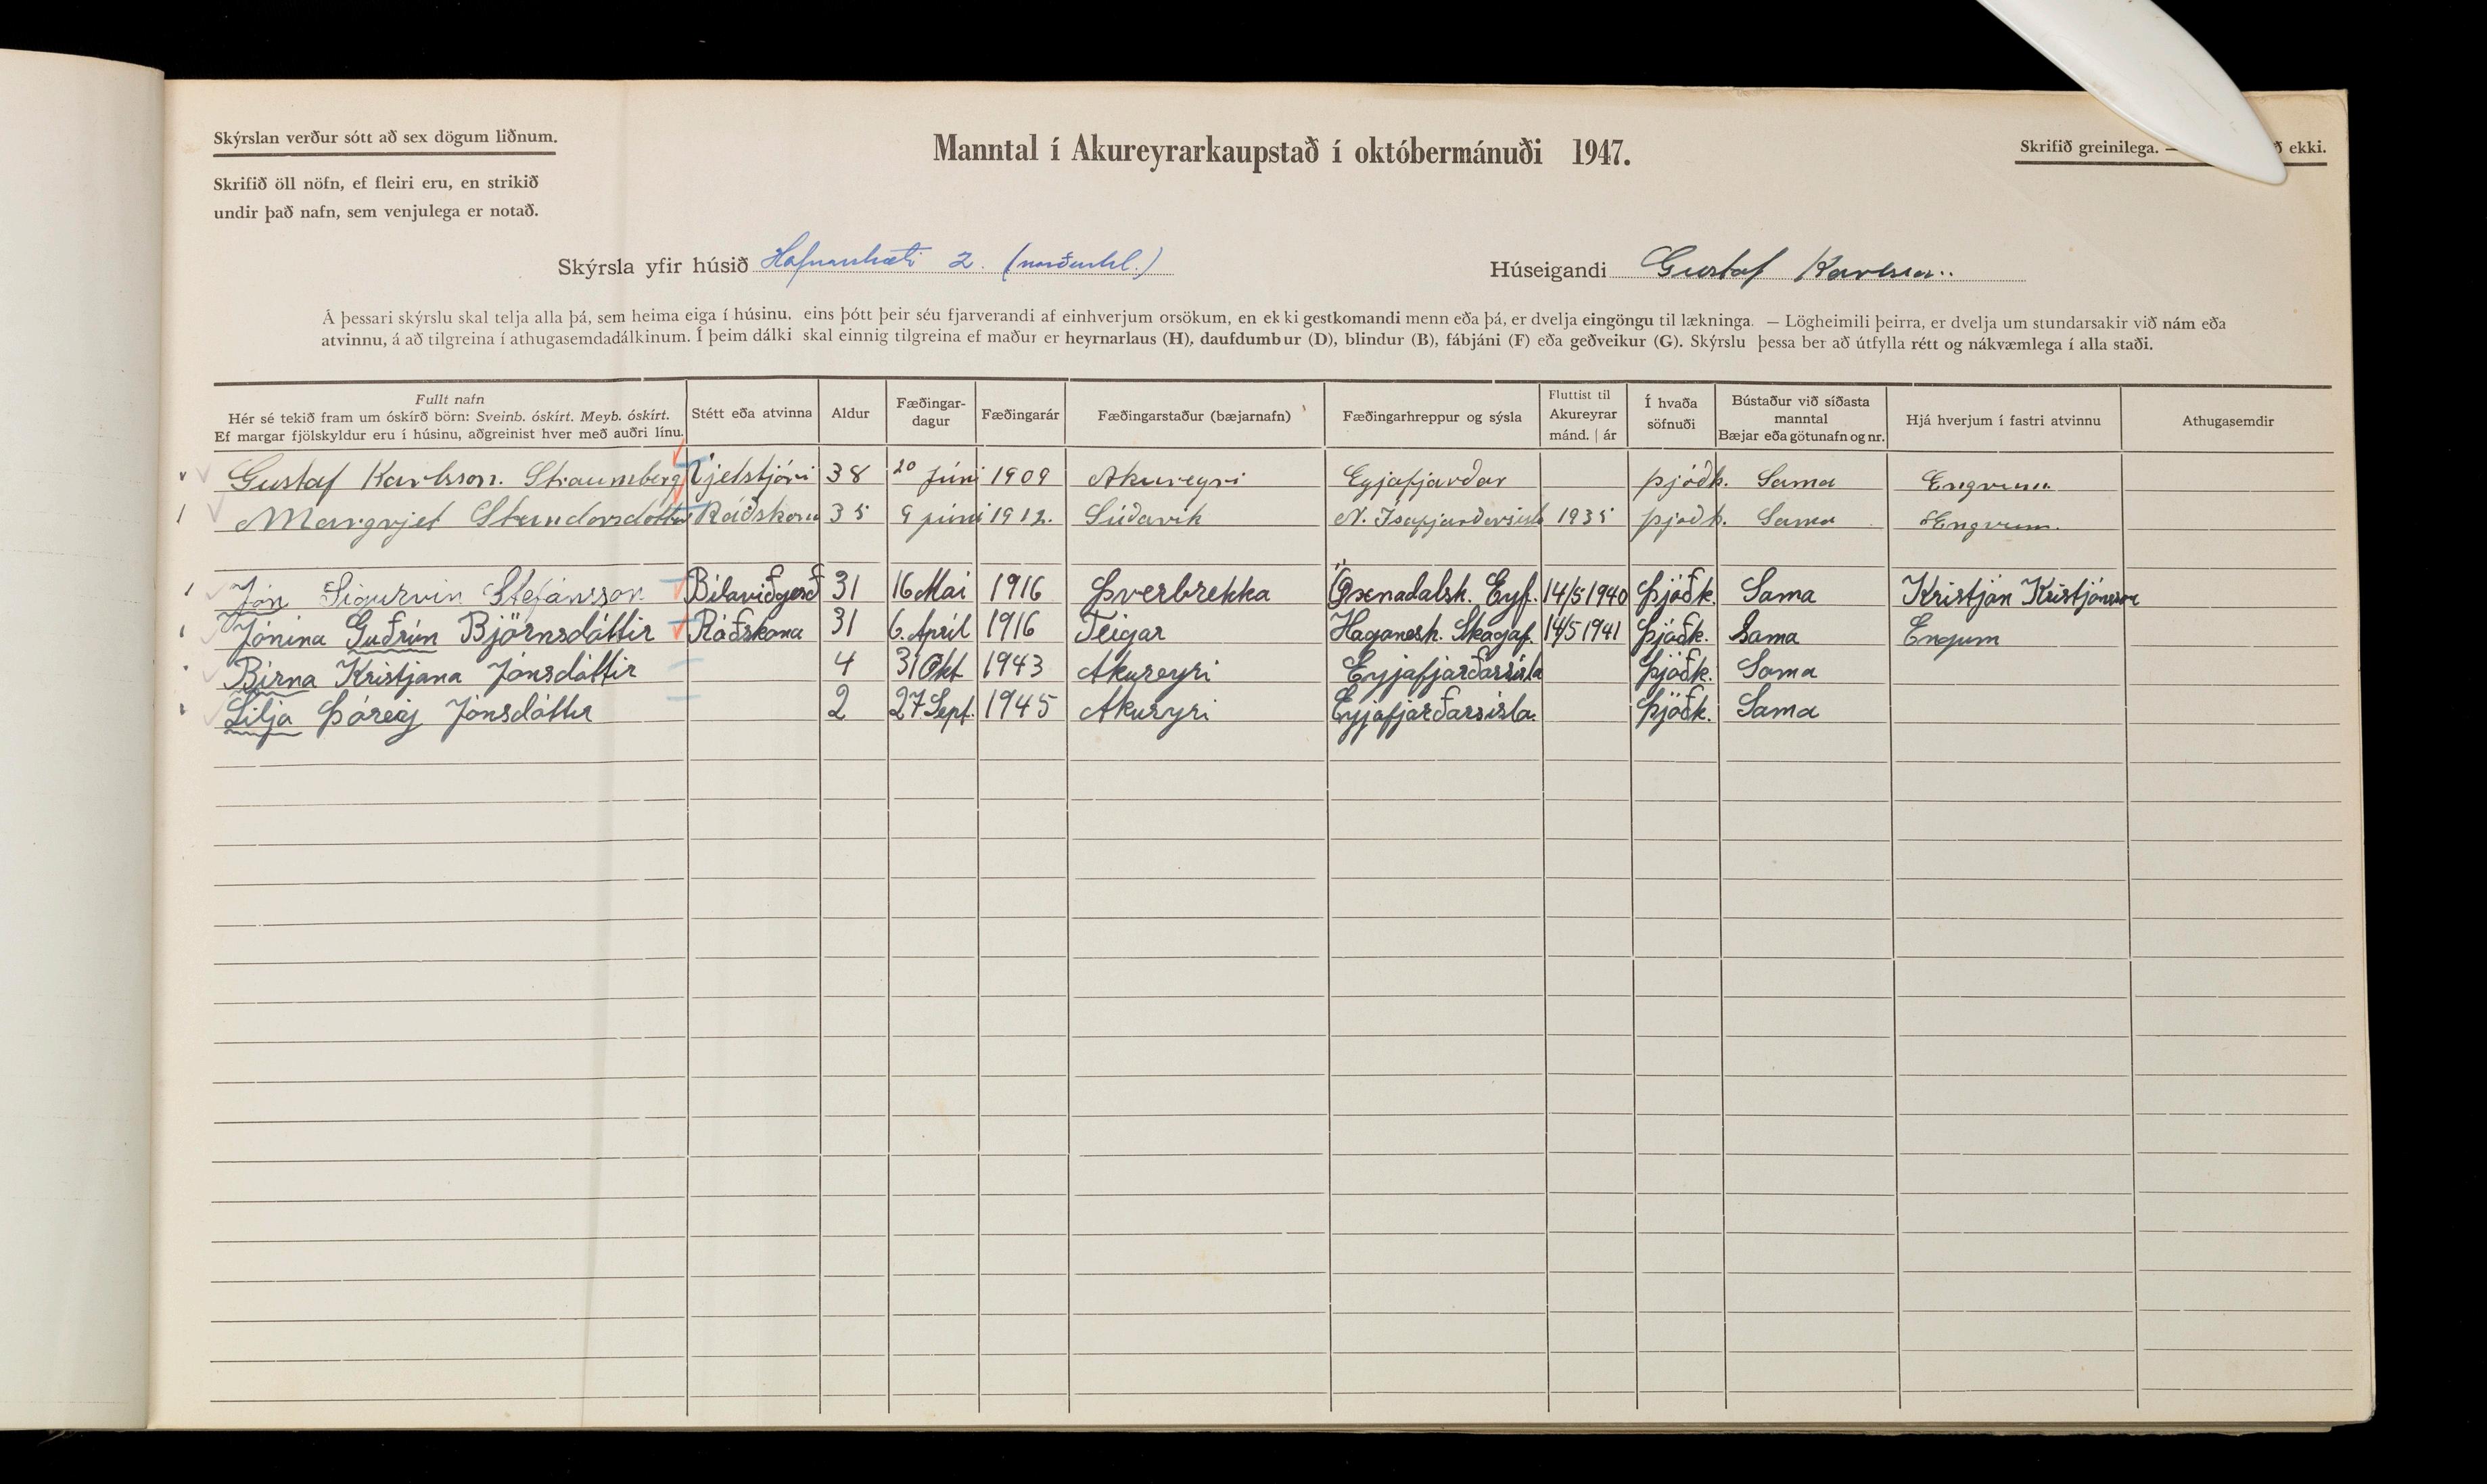 Skýrslan verður sótt að sex dögum liðnum.
Skrifið öll nöfn, ef fleiri eru, en strikið
undir það nafn, sem venjulega er notað.
Manntal í Akureyrarkaupstað í októbermánuði 1947.
Skrifið greinilega. — ekki.
Skýrsla yfir húsið Hafnarstræti 2. (norðurhl.)
Húseigandi Gustaf Karlsson
Á þessari skýrslu skal telja alla þá, sem heima eiga í húsinu, eins þótt þeir séu fjarverandi af einhverjum orsökum, en ekki gestkomandi menn eða þá, er dvelja eingöngu til lækninga. — Lögheimili þeirra, er dvelja um stundarsakir við nám eða
atvinnu, á að tilgreina í athugasemdadálkinum. Í þeim dálki skal einnig tilgreina ef maður er heyrnarlaus (H), daufdumbur (D), blindur (B), fábjáni (F) eða geðveikur (G). Skýrslu þessa ber að útfylla rétt og nákvæmlega í alla staði.
Fullt nafn
Hér sé tekið fram um óskírð börn: Sveinb. óskírt. Meyb. óskírt.
Ef margar fjölskyldur eru í húsinu, aðgreinist hver með auðri línu.
Stétt eða atvinna
Aldur
Fæðingar-
dagur
Fæðingarár
Fæðingarstaður (bæjarnafn)
Fæðingarhreppur og sýsla
Fluttist til
Akureyrar
mánd. | ár
Í hvaða
söfnuði
Bústaður við síðasta
manntal
Bæjar eða götunafn og nr.
Hjá hverjum í fastri atvinnu
Athugasemdir
Gustaf Karlsson. Straumberg 38 20 Júni 1909 Akureyri Eyjafjarðar þjóðk. Sama Engrum
Margrjet Ráðskona 35 9 júni 1912. Súðavik N. Ísafjarðarsísl 1935 þjóðk. Sama Engrum.
Jón Sigurvin Stefánsson Bílaviðgerð 31 16 Mai 1916 Þverbrekka Öxnadalsh. Eyf. 14/5 1940 Þjóðk. Sama Kristján Kristjánsson
Jónina Guðrún Björnsdóttir Ráðskona 31 6. April 1916 Teigar Haganesh. Skagaf. 14/5 1941 Þjóðk. Sama Engum
Birna Kristjana Jónsdóttir 4 31 Okt 1943 Akureyri Eyjafjarðarsísla Þjóðk. Sama
Lilja Þórey Jónsdóttir 2 27 Sept. 1945 Akuryri Eyjafjarðarsísla. Þjóðk. Sama